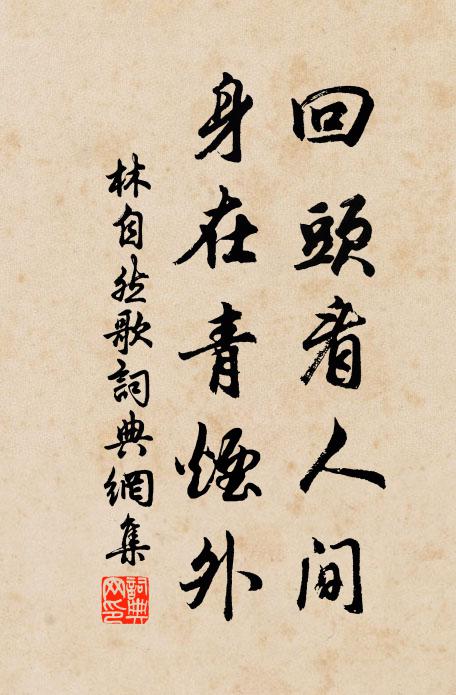 回頭看人間
身在青煙外
林自然歌詞典網集
詞典
网印